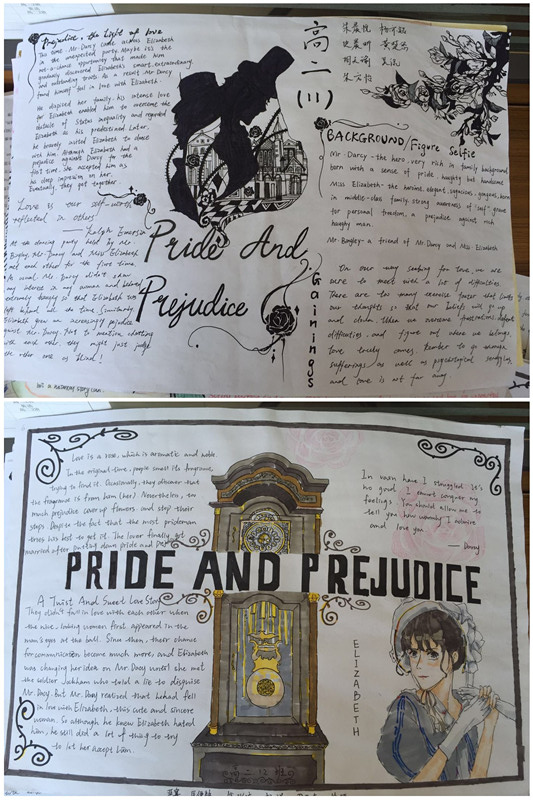 Prejudice, the Light of love
This time, Mr. Darcy came across Elizabeth
in the unexpected party. Maybe it's the
gradually discovered Elizabeth's smart, extraordinary,
and outstanding traits. As a result, Mr. Darcy
found himself fall in love with Elizabeth.
He despised her family, his intense love
for Elizabeth enabled him to overcome the
obstacle of status inequality and regarded
Elizabeth as his predestined. Later,
he bravely visited Elizabeth to dance
with him. Although Elizabeth had a
prejudice against Darcy for the
first time. She accepted him as
he deep impression on her.
Eventually, they got together.
Love is our self-worth
reflected in others
—— Ralph Emerson
At the dancing party held by Mr.
Bingley, Mr. Darcy and Miss Elizabeth
met each other for the first time.
As usual, Mr. Darcy didn't show
any interest in any woman and behaved
extremely
Elizabeth grew an increasingly prejudice
against him. Darcy, Not to mention, chatting
with each other, they might just judge
the other one as blind!
Pride And
Prejudice
高二(11)
BACKGROUND/Figure Selfie
Mr. Darcy - the hero, very rich in family background
born with a sense of pride, haughty but handsome
Miss Elizabeth - the heroine, elegant, sagacious, gorgeous, born
in middle-class family, strong awareness of "self", crave
for personal freedom, a prejudice against rich
haughty man.
Mr. Bingley - a friend of Mr. Darcy and Miss Elizabeth
Gainings
On our way seeking for love, we are
sure to meet with a lot of difficulties.
There are too many exterior factor that limits
our thoughts so that our beliefs will go up
and down. When we overcome frustrations, defeat
difficulties, and figure out where we belongs,
love truely comes. Remember to go enough
sufferings as well as psychological struggling,
and love is not far away.
Love is a rose, which is aromatic and noble.
In the original time, people smell its fragrance,
trying to find it. Occasionally, they discover that
the fragrance is from him (her). Nevertheless, too
much prejudice cover up flowers and stop their
steps. Despite the fact that the most prideman
tries his best to get it. The lover finally get
married after putting down pride and prejudice.
In vain have I struggled. It's
no good. I cannot conquer my
feelings. You should allow me to
tell you how warmly I admire
and love you
—— Darcy
PRIDE AND PREJUDICE
A Twist And Sweet Love Story
They didn't fall in love with each other when
the nice-looking women first appeared in the
man's eyes at the ball. Since then, their chance
for communication become much more, and Elizabeth
was changing her idea on Mr. Darcy until she met
the soldier who told a lie to disguise
Mr. Darcy. But Mr. Darcy realized that he had fell
in love with Elizabeth, this cute and sincere
woman. So although he knew Elizabeth hated
him, he still did a lot of thing to try
to let her accept him.
ELIZABETH
高二12班